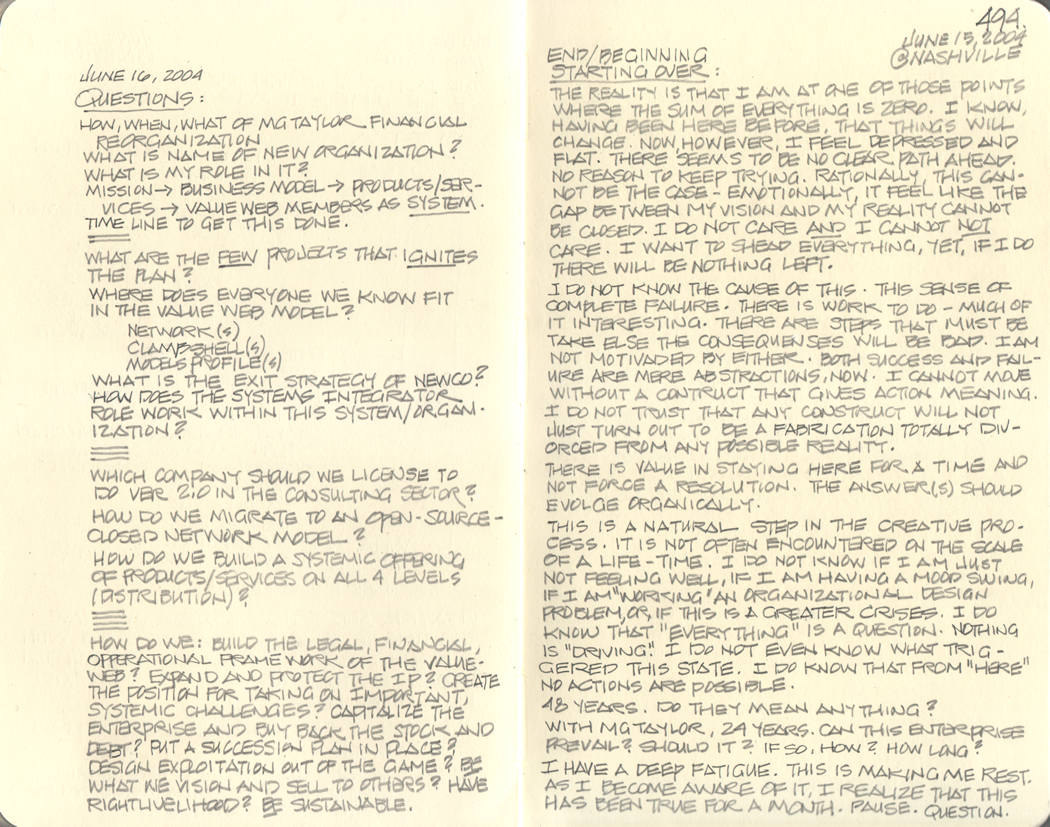 JUNE 16, 2004
QUESTIONS:
HOW, WHEN, WHAT OF MG TAYLOR FINANCIAL
REORGANIZATION
WHAT IS NAME OF NEW ORGANIZATION?
WHAT IS MY ROLE IN IT?
MISSION → BUSINESS MODEL → PRODUCTS/SER-
VICES → VALUE WEB MEMBERS AS SYSTEM.
TIME LINE TO GET THIS DONE.
WHAT ARE THE FEW PROJECTS THAT IGNITES
THE PLAN?
WHERE DOES EVERYONE WE KNOW FIT
IN THE VALUE WEB MODEL?
NETWORK(S)
CLAMPSHELL(S)
MODELS PROFILE(S)
WHAT IS THE EXIT STRATEGY OF NEWCO?
HOW DOES THE SYSTEMS INTEGRATOR
ROLE WORK WITHIN THIS SYSTEM/ORGAN-
IZATION?
WHICH COMPANY SHOULD WE LICENSE TO
DO VER 2.0 IN THE CONSULTING SECTOR?
HOW DO WE MIGRATE TO AN OPEN-SOURCE-
CLOSED NETWORK MODEL?
HOW DO WE BUILD A SYSTEMIC OFFERING
OF PRODUCTS/SERVICES ON ALL 4 LEVELS
(DISTRIBUTION)?
HOW DO WE: BUILD THE LEGAL, FINANCIAL,
OPPERATIONAL FRAME WORK OF THE VALUE-
WEB? EXPAND AND PROTECT THE IP? CREATE
THE POSITION FOR TAKING ON IMPORTANT,
SYSTEMIC CHALLENGES? CAPITALIZE THE
ENTERPRISE AND BUY BACK THE STOCK AND
DEBT? PUT A SUCCESSION PLAN IN PLACE?
DESIGN EXPLOITATION OUT OF THE GAME? BE
WHAT WE VISION AND SELL TO OTHERS? HAVE
RIGHTLIVELIHOOD? BE SUSTAINABLE.
494.
JUNE 15, 2004
@NASHVILLE
END/BEGINNING
STARTING OVER:
THE REALITY IS THAT I AM AT ONE OF THOSE POINTS
WHERE THE SUM OF EVERYTHING IS ZERO. I KNOW,
HAVING BEEN HERE BEFORE, THAT THINGS WILL
CHANGE. NOW, HOWEVER, I FEEL DEPRESSED AND
FLAT. THERE SEEMS TO BE NO CLEAR PATH AHEAD.
NO REASON TO KEEP TRYING. RATIONALLY, THIS CAN-
NOT BE THE CASE - EMOTIONALLY, IT FEEL LIKE THE
GAP BETWEEN MY VISION AND MY REALITY CANNOT
BE CLOSED. I DO NOT CARE AND I CANNOT NOT
CARE. I WANT TO SHEAD EVERYTHING, YET, IF I DO
THERE WILL BE NOTHING LEFT.
I DO NOT KNOW THE CAUSE OF THIS. THIS SENSE OF
COMPLETE FAILURE. THERE IS WORK TO DO - MUCH OF
IT INTERESTING. THERE ARE STEPS THAT MUST BE
TAKE ELSE THE CONSEQUENSES WILL BE BAD. I AM
NOT MOTIVADED BY EITHER. BOTH SUCCESS AND FAIL-
URE ARE MERE ABSTRACTIONS, NOW. I CANNOT MOVE
WITHOUT A CONTRUCT THAT GIVES ACTION MEANING.
I DO NOT TRUST THAT ANY CONSTRUCT WILL NOT
JUST TURN OUT TO BE A FABRICATION TOTALLY DIV-
ORCED FROM ANY POSSIBLE REALITY.
THERE IS VALUE IN STAYING HERE FOR A TIME AND
NOT FORCE A RESOLUTION. THE ANSWER(S) SHOULD
EVOLGE ORGANICALLY.
THIS IS A NATURAL STEP IN THE CREATIVE PRO-
CESS. IT IS NOT OFTEN ENCOUNTERED ON THE SCALE
OF A LIFE-TIME. I DO NOT KNOW IF I AM JUST
NOT FEELING WELL, IF I AM HAVING A MOOD SWING,
IF I AM "WORKING" AN ORGANIZATIONAL DESIGN
PROBLEM, OR, IF THIS IS A GREATER CRISES. I DO
KNOW THAT "EVERYTHING" IS A QUESTION. NOTHING
IS "DRIVING". I DO NOT EVEN KNOW WHAT TRIG-
GERED THIS STATE. I DO KNOW THAT FROM "HERE"
NO ACTIONS ARE POSSIBLE.
48 YEARS. DO THEY MEAN ANYTHING?
WITH MG TAYLOR, 24 YEARS. CAN THIS ENTERPRISE
PREVAIL? SHOULD IT? IF SO, HOW? HOW LONG?
I HAVE A DEEP FATIGUE. THIS IS MAKING ME REST.
AS I BECOME AWARE OF IT, I REALIZE THAT THIS
HAS BEEN TRUE FOR A MONTH. PAUSE. QUESTION.